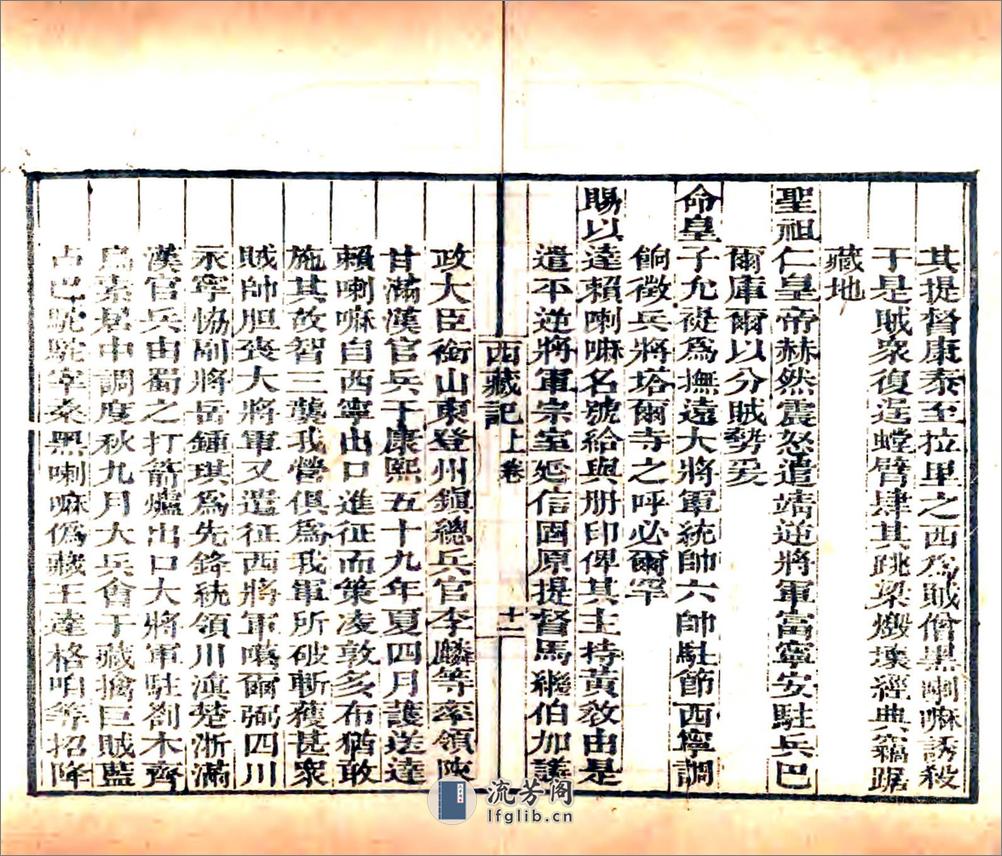 其提督康泰至拉里之西爲賊僧黑喇嘛誘殺
于是賊衆復逞螳臂肆其跳梁燬壞經典竊踞
藏地
聖祖仁皇帝赫然震怒遣靖逆將軍富寧安駐兵巴
爾庫爾以分賊勢叐
命皇子允禵爲撫遠大將軍統帥六師駐節西寧調
餉徵兵將塔爾寺之呼必爾罕
賜以達賴喇嘛名號給與册印俾其主持黃教由是
遣平逆將軍宗室延信固原提督馬繼伯加議
西藏記上卷 十二
政大臣銜山東登州鎭總兵官李麟等率領陝
甘滿漢官兵于康熙五十九年夏四月護送達
賴喇嘛自西寧出口進征而策凌敦多布猶敢
施其故智三襲我營俱爲我軍所破斬獲甚衆
賊帥胆喪大將軍又遣征西將軍噶爾弼四川
永寧協副將岳鍾琪爲先鋒統領川滇楚浙滿
漢官兵由蜀之打箭爐出口大將軍駐劄木齊
烏素居中調度秋九月大兵會于藏擒巨賊藍
占巴駝駝宰桑黑喇嘛僞藏王達格咱等招降
流芳阁
lfglib.cn